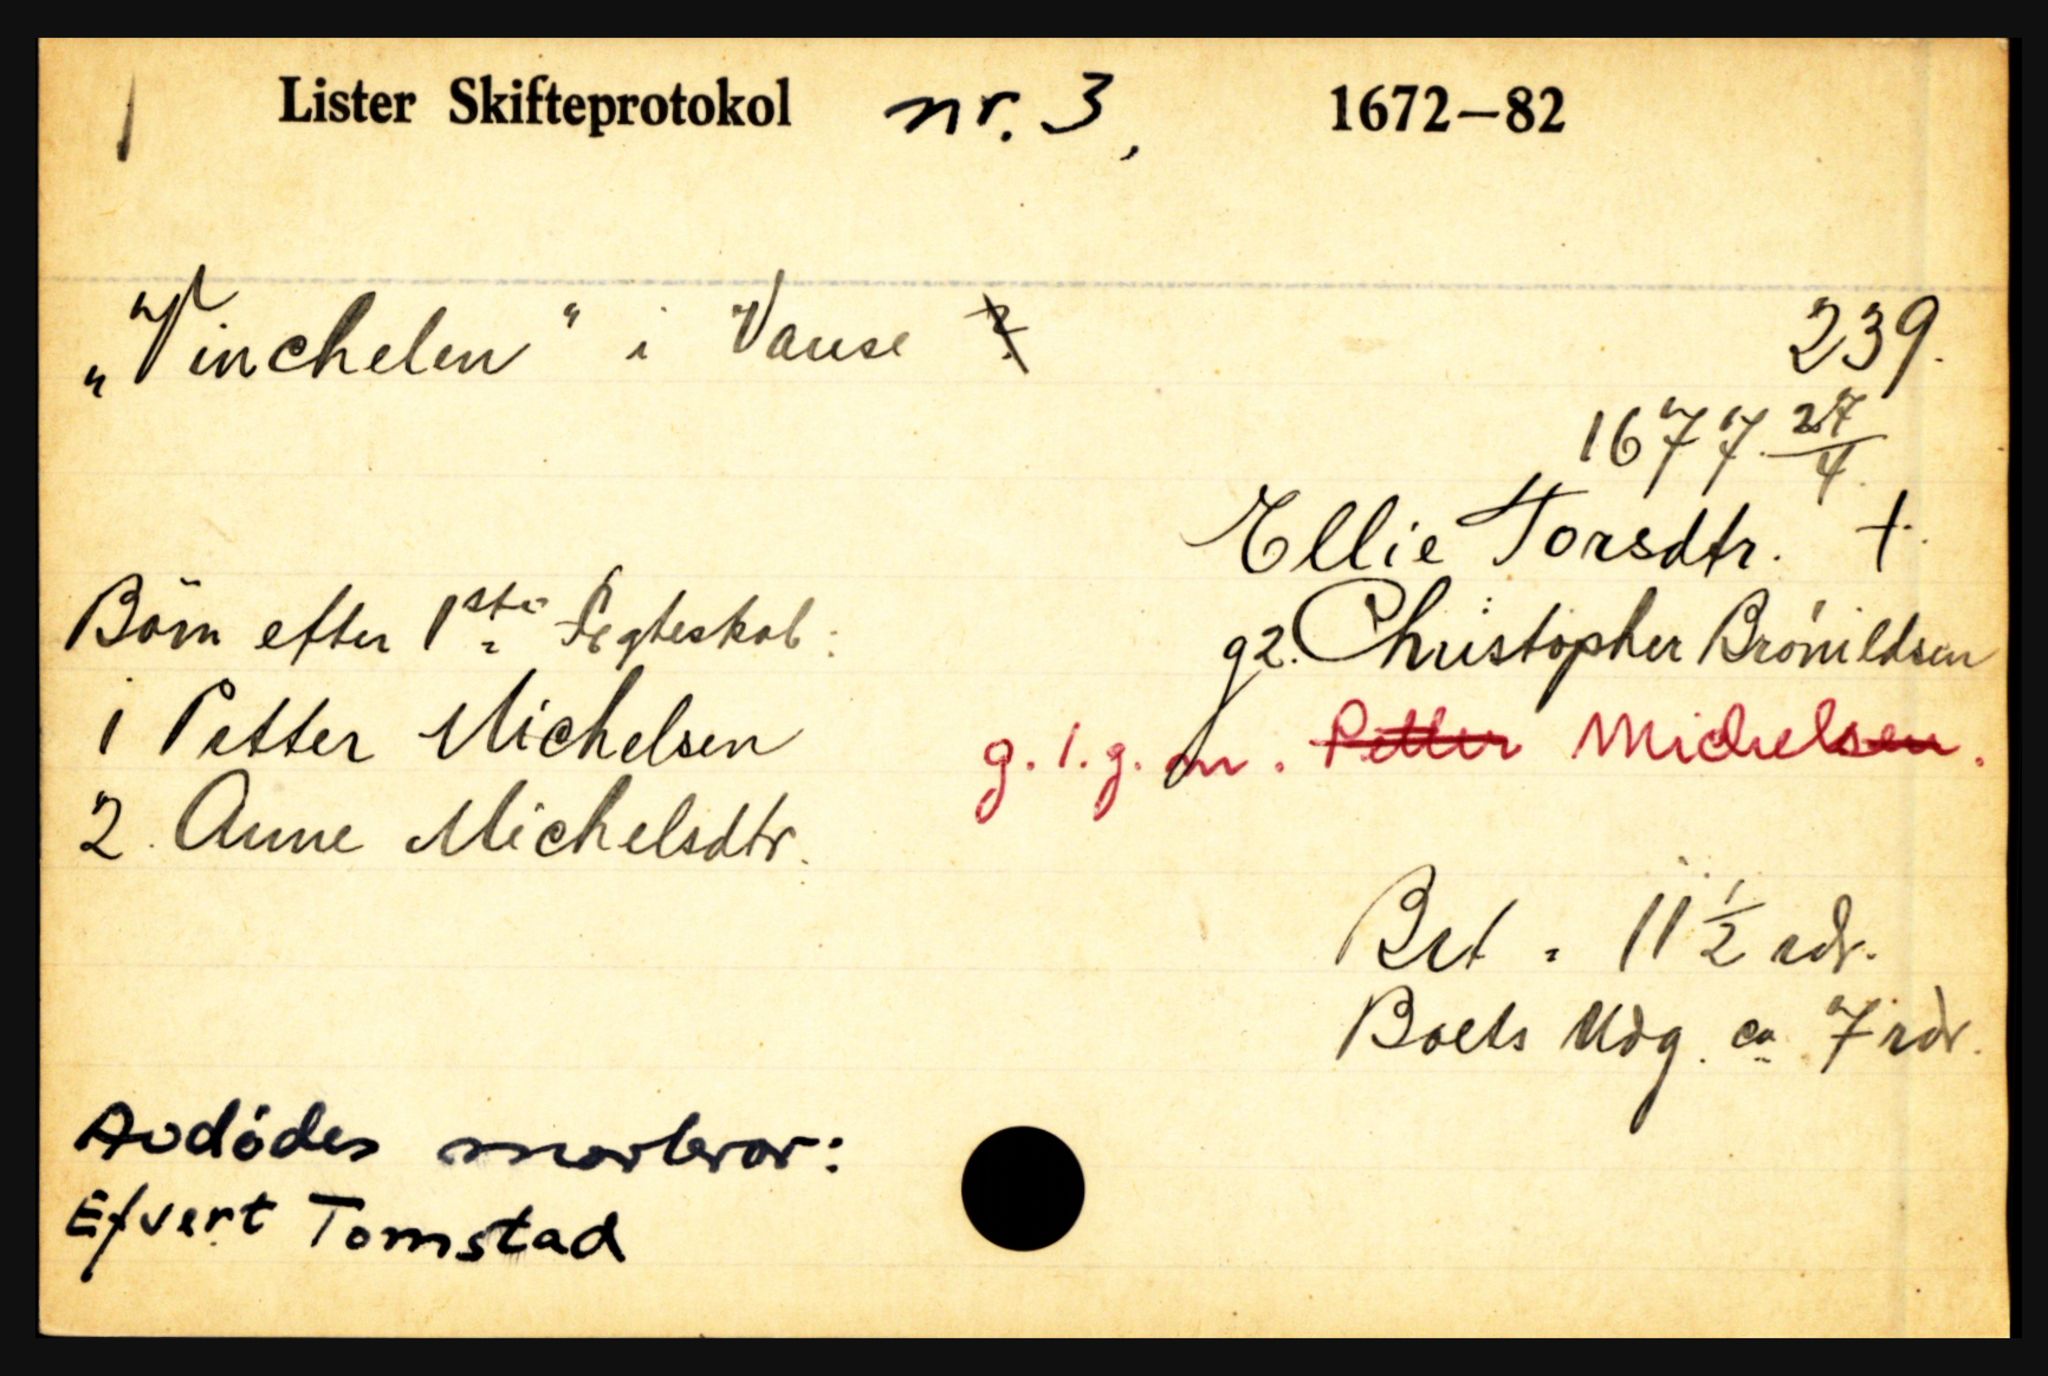 1
Lister Skifteprotokol nr. 3, 1672–82
„Vinchelen“ i Vanse
239.
1677 27/4.
Ellie Torsdtr. †.
Börn efter 1ste Ægteskab:
g2. Christopher Brónildsen
1 Petter Michelsen
g. 1. g. m. Petter Michelsen.
2. Anne Michelsdtr.
Brt = 11 1/2 rdr.
Boets Udg. ca 7 rdr.
Avdödes morbror:
Efvert Tomstad